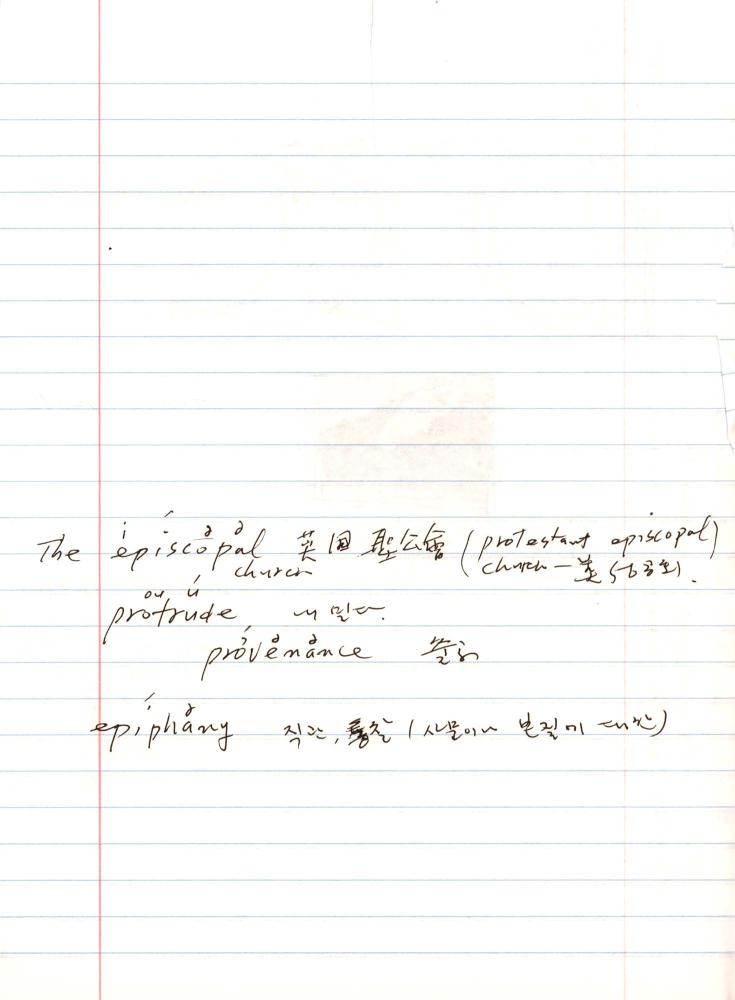 The episcopal 英国 聖公會 (protestant episcopal)
church church — 美 성공회.
protrude 내밀다.
provenance 출처
epiphany 직관, 통찰 (사물이나 본질에 대한)